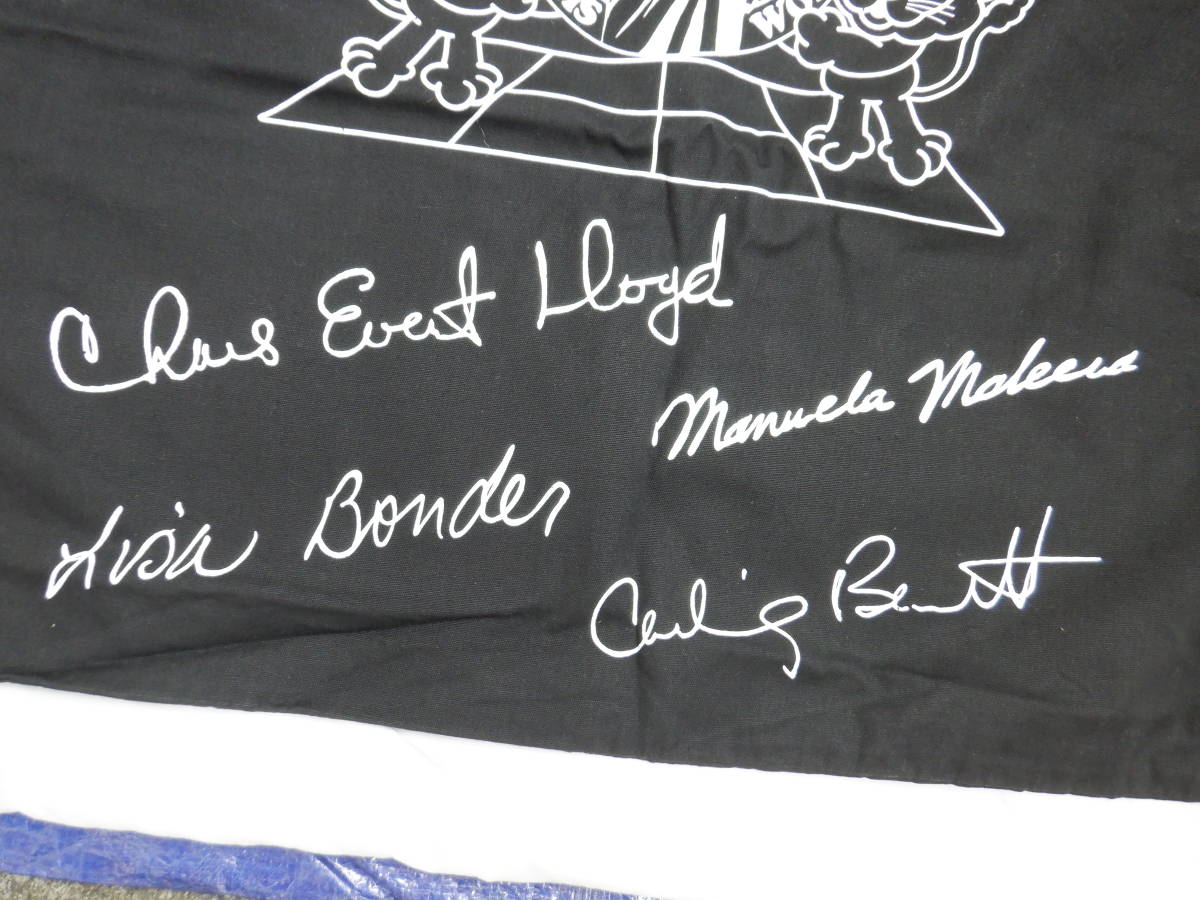 Chris Evert Lloyd
Manuela Maleeva
Lisa Bonder
Carling Bassett